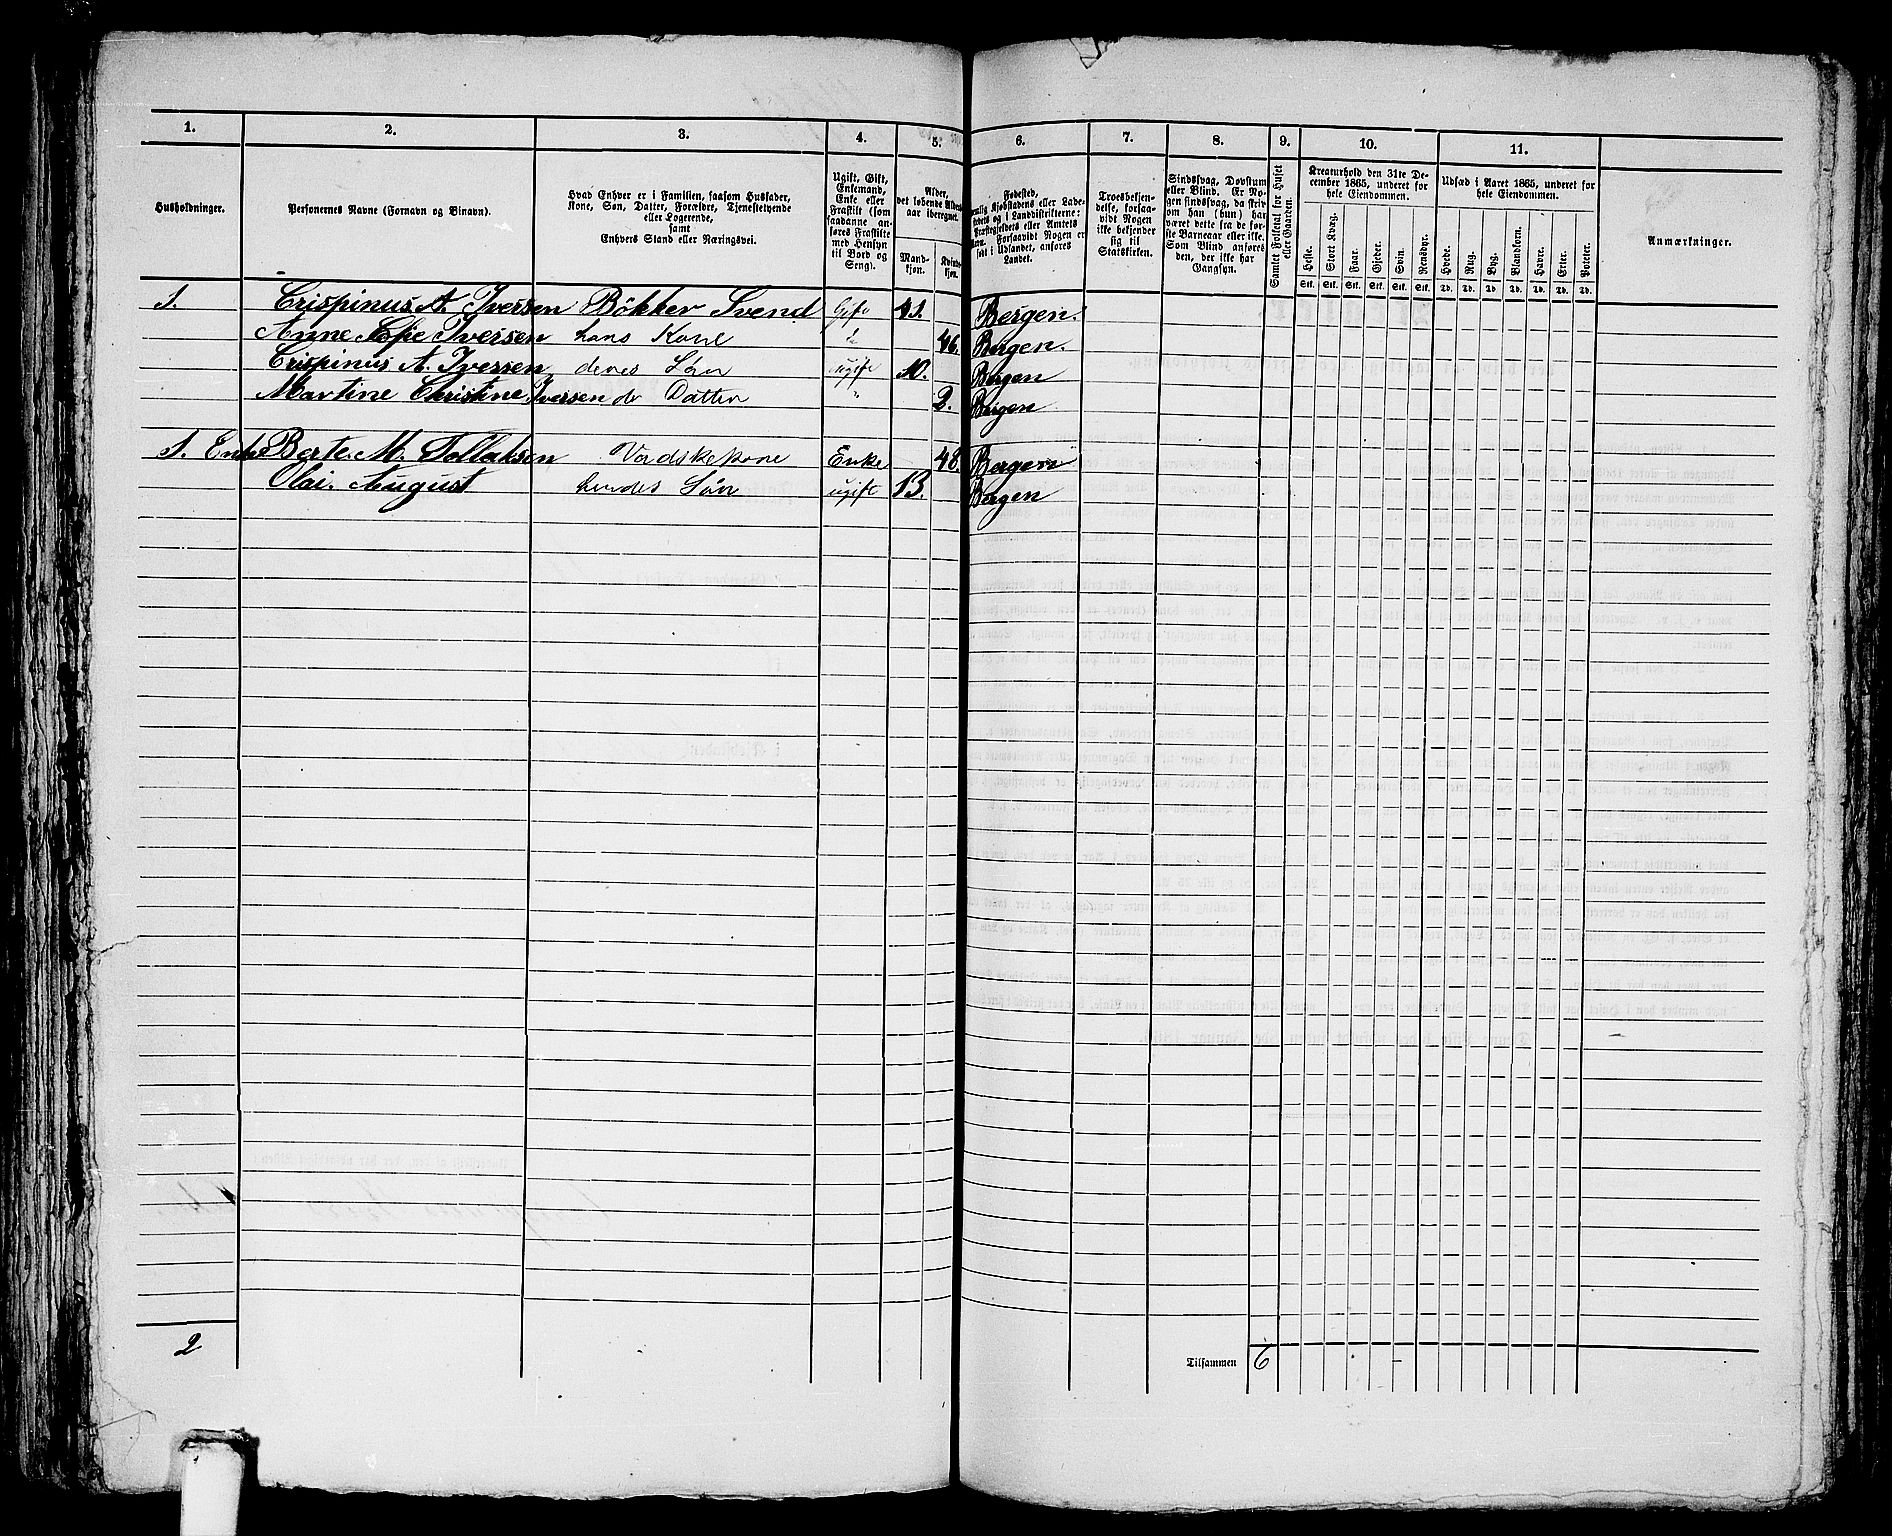 1. 2. 3. 4. 5. 6. 7. 8. 9. 10. 11.
Husholdninger.
Personernes Navne (Fornavn og Binavn).
Hvad Enhver er i Familien, saasom Husfader,
Kone, Søn, Datter, Forældre, Tjenestetyende
eller Logerende,
samt
Enhvers Stand eller Næringsvei.
Ugift, Gift,
Enkemand,
Enke eller
Fraskilt (som
saadanne an-
føres Fraskilte
med Hensyn
til Bord og
Seng).
Alder,
det løbende Alders-
aar iberegnet.
Mand-
kjøn.
Kvinde-
kjøn.
Fødested,
Forsaavidt Nogen er
født i Udlandet, anføres
Landet.
Troesbekjen-
delse, forsaa-
vidt Nogen
ikke bekjender
sig til
Statskirken.
Sindssvag, Døvstum
eller Blind. Er No-
gen sindssvag, da skriv
om han (hun) har
været dette fra de før-
ste Barneaar eller ikke.
Som Blind anføres
den, der ikke har
Gangsyn.
Samlet Folketal for Huset
eller Gaarden.
Kreaturhold den 31te De-
cember 1865, underet for
hele Eiendommen.
Heste. Stort Kvæg. Faar. Gjeder. Svin. Rensdyr.
Stk. Stk. Stk. Stk. Stk. Stk.
Udsæd i Aaret 1865, underet for
hele Eiendommen.
Hvede. Rug. Byg. Blandkorn. Havre. Erter. Poteter.
Td. Td. Td. Td. Td. Td. Td.
Anmærkninger.
1. Crispinus A. Iversen Bökker Svend Gift 41. Bergen.
Anne Sofie Iversen hans Kone 46. Bergen.
Crispinus A. Iversen deres Sön ugift 10. Bergen
Martine Christine Iversen do Datter " 2. Bergen
1. Enke Berte M. Tollaksen Vadskekone Enke 48 Bergen
Olai August hendes Sön ugift 13. Bergen
2 Tilsammen 6